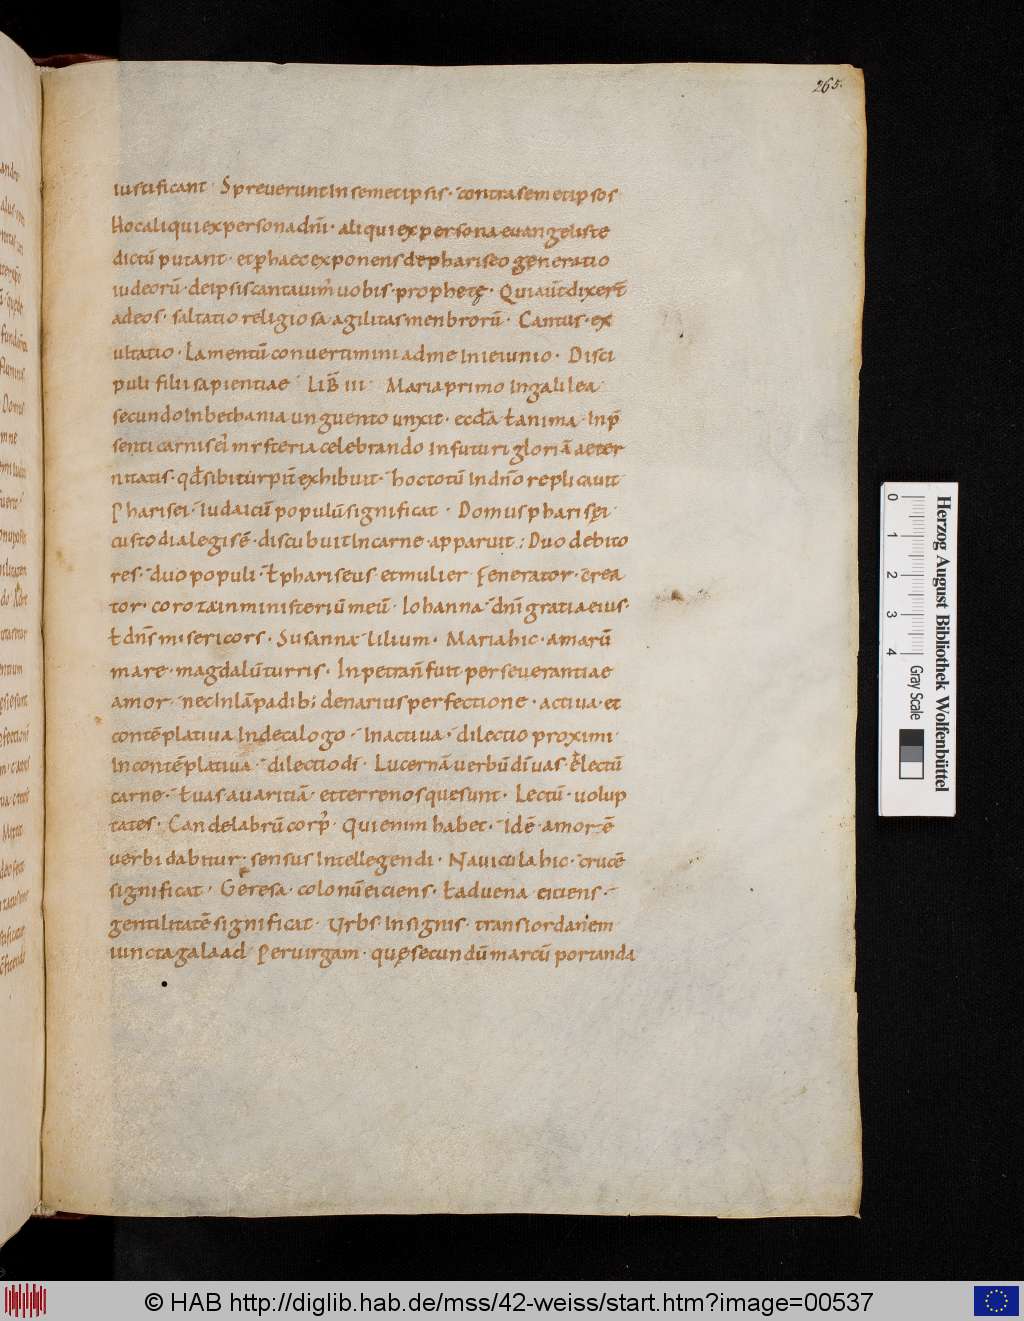 265.
iustificant · Spreuerunt In semetipsis · contra semetipsos
Hoc aliqui ex persona dnī · aliqui ex persona euangeliste
dictū putant · et phaec exponens de phariseo generatio
iudeorū · de ipsis cantauim̄ uobis · prophetę · Qui aūt dixert̄
ad eos · saltatio religiosa agilitas menbrorū · Cantus · ex
ultatio · Lamentū conuertimini ad me In ieiunio · Disci
puli filii sapientiae LIB̄ III · Maria primo In galilea
secundo In bethania unguento unxit · ecclā ł anima · In p̄
senti carnis ei mysteria celebrando In futuri gloriā aeter
nitatis · qđ sibi turpit̄ exhibuit · hoc totū In dnō replicauit
Pharisei · Iudaicū populū significat · Domus pharisęi ·
custodia legis ē · discubuit In carne apparuit : Duo debito
res · duo populi · ł phariseus et mulier Fenerator · Crea
tor · corota in ministeriū meū · Iohanna dnī gratia eius ·
ł dn̄s misericors · Susanna lilium · Maria hic · amarū
mare · magdalū turris · In petra n̄ fuit perseuerantiae
amor · nec In lāpadib; denarius perfectione · actiua · et
contēplatiua In decalogo · In actiua · dilectio proximi ·
In contēplatiua · dilectio dī · Lucernā uerbū dī uas · ł lectū
carne · ł uas auaritiā et terrenos questus · Lectū · uolup
tates · Candelabrū corp̄ · Qui enim habet · Idē · amorē
uerbi dabitur · sensus Intellegendi · Nauicula hic · crucē
significat · Geresa · colonū eiciens · ł aduena eiciens ·
gentilitatē significat · Urbs Insignis · trans iordanem
iuncta galaad Per uirgam · quę secundū marcū portanda
0
1
2
3
4
Herzog August Bibliothek Wolfenbüttel
Gray Scale
© HAB http://diglib.hab.de/mss/42-weiss/start.htm?image=00537